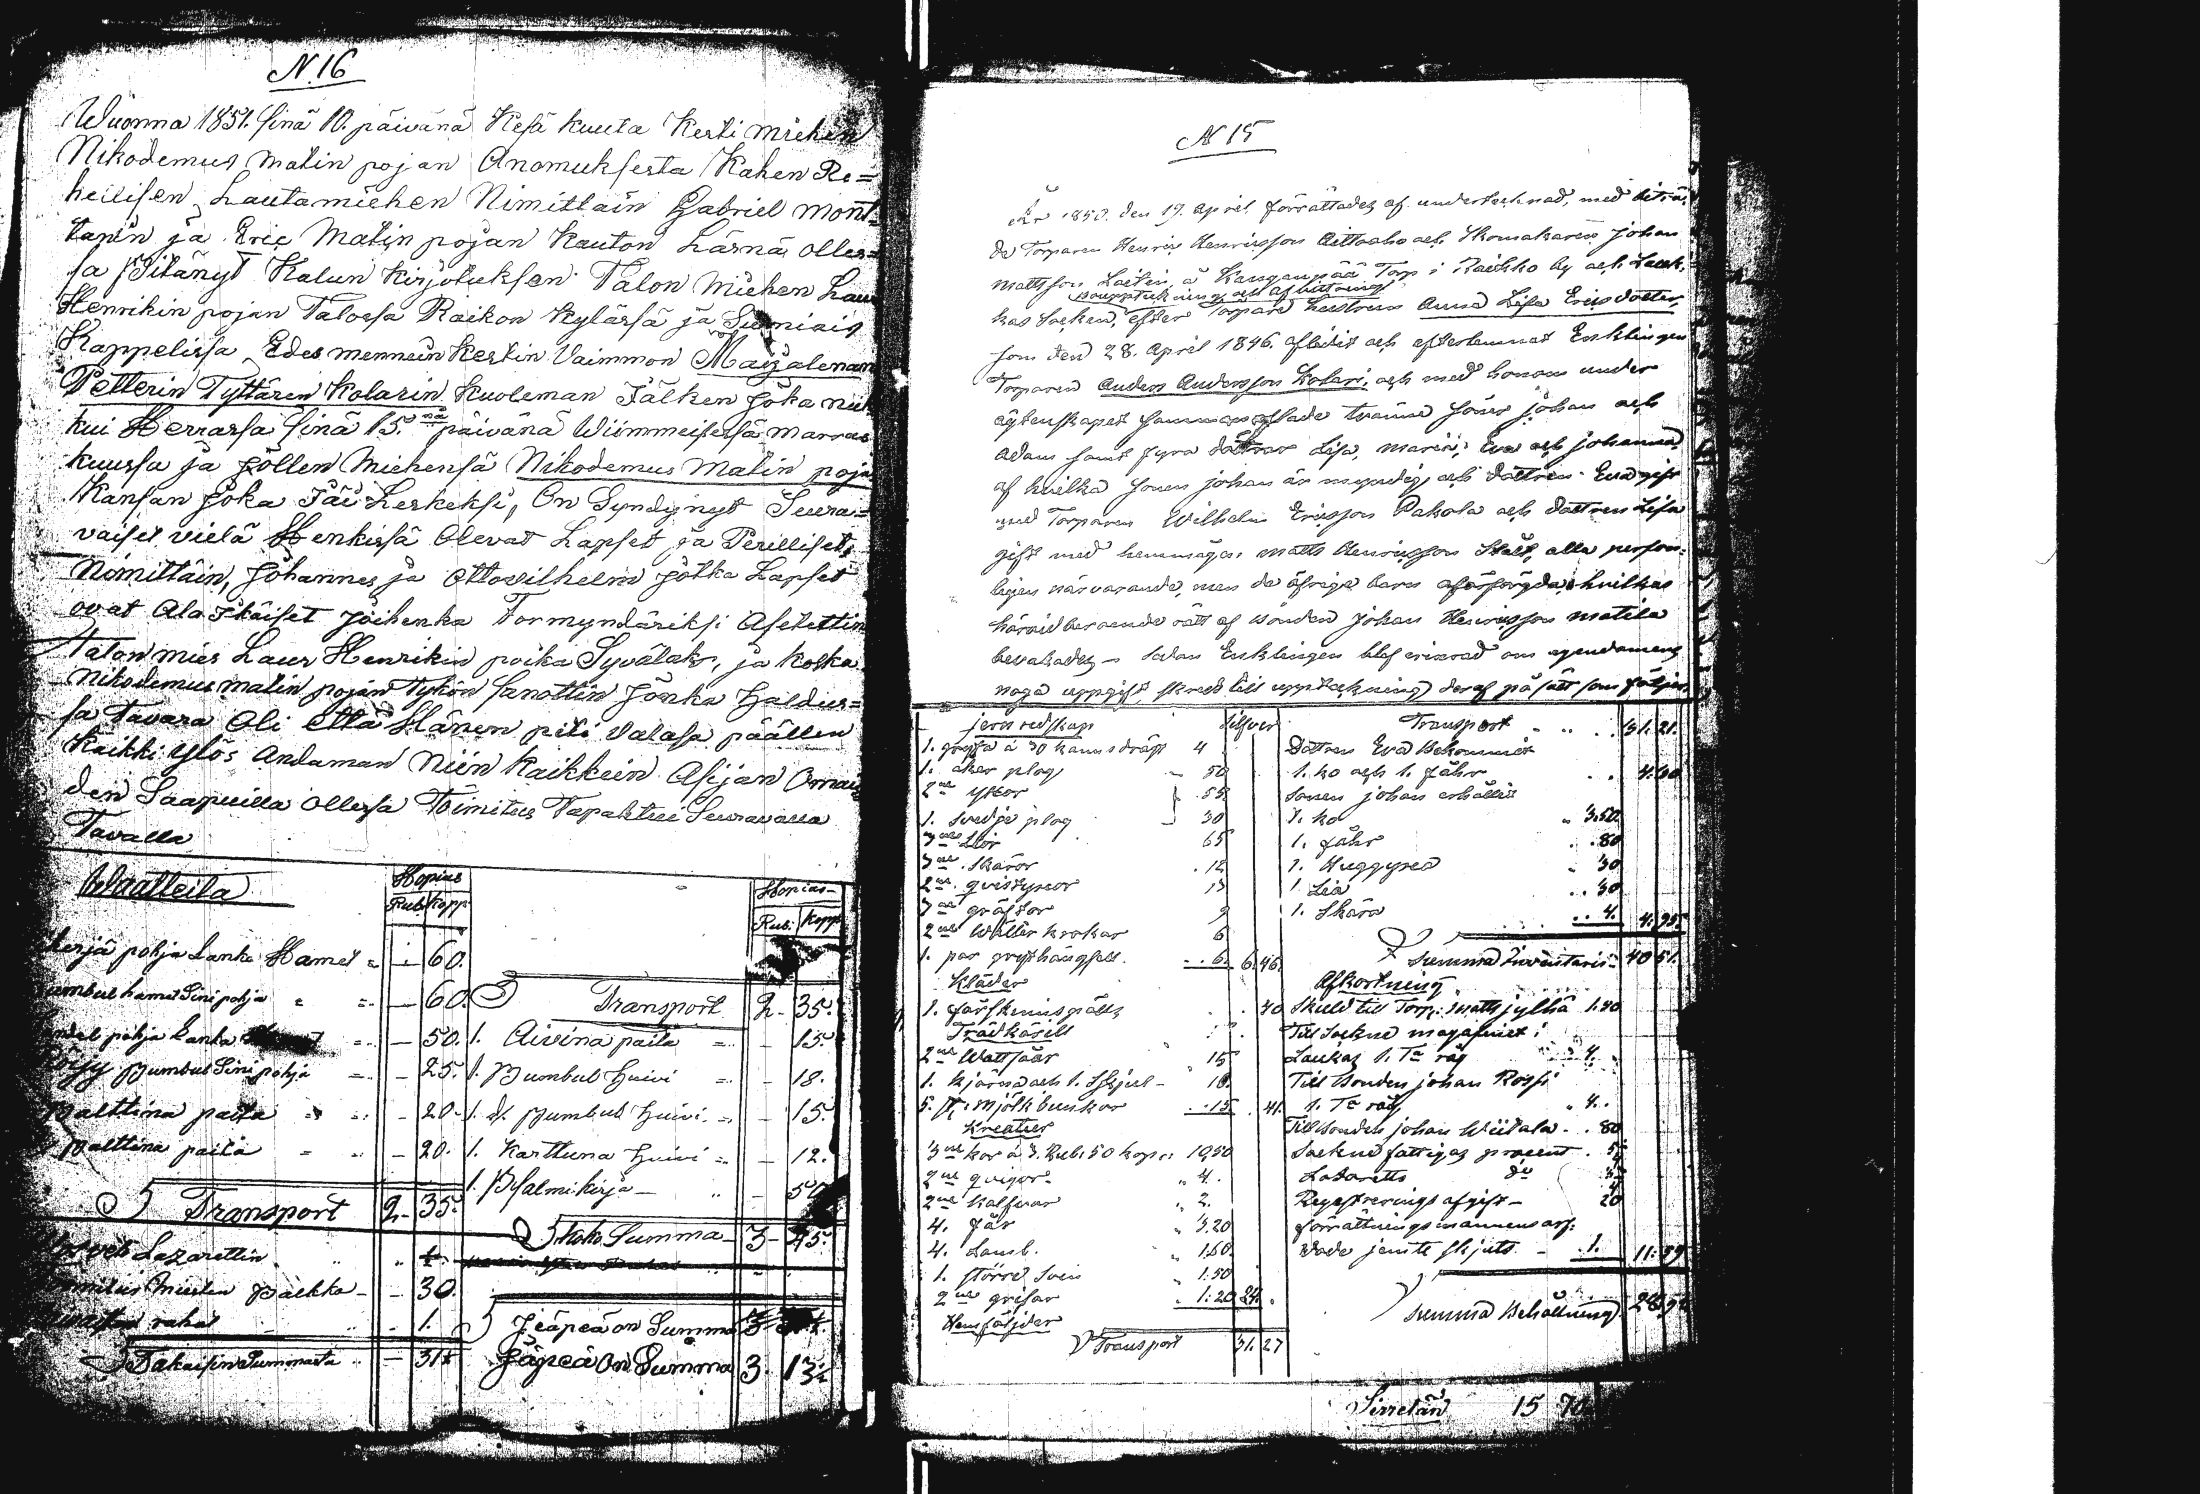 N.16
Wuonna 1851. sinä 10. päivänä Kesä kuuta Kesti miehen
Nikodemus Matin pojan Anomuksesta Kahen Re=
heilisen Lautamiehen Nimittäin Gabriel Mont=
tapin ja Eric Matin pojan Kauton Läsnä olles=
sa Pitänyt Kalun Kirjotuksen Talon Miehen Laur
Henrikin pojan Talossa Raikon Kylässä ja
Kappelissa Edes mennein Kestin Vaimmon Maijalenan
Petterin Tyttären Kolarin Kuoleman Jälken Joka nuk
kui Herrassa sinä 15.nä päivänä Wiimmeisessä marras
kuussa ja Jollen Miehensä Nikodemus Matin poja
Kansan Joka Jäi Leskeksi, On Syndynyt Seura=
vaiset vielä Henkissä Olevat Lapset ja Perilliset,
Nimittäin, Johannes ja Ottovilhelm Jotka Lapset
ovat Ala Ikäiset Joihenka Formyndäriksi Asetettin
Talon mies Laur Henrikin poika Syvälaks, ja koska
Nikodemus matin pojan Tykön sanottin Jonka Haldus=
sa Tavara Oli Että Hänen piti Valasa päällen
Kaikki Ylös Andaman Niin Kaikkein Asijan Omais
den Saapuilla ollessa Toimitus Tapahtui Seuravalla
Tavalla
Waatteita
Hopias
Rub. Kopp
Hopias
Rub. Kopp
pohja Lanka Hamet = - 60.
hamet Sini pohja - 60.
pohja Lanka - 50.
pumbul Sini pohja - 25.
palttina paita - 20.
palttina paita - 20.
Transport 2. 35.
Transport 2. 35.
1. Aivina paita - 15.
1. Pumbul Huivi - 18.
1. d. pumbul Huivi - 15.
1. Karttuna Huivi - 12.
1. Psalmikirja - 50
Koko Summa 3. 45.
Lazarettin
Miesten palkka - 30.
rahat - 1.
Takaisin Summasta - 31
Jääpeä on Summa
Jäpeä On Summa 3. 13
N 15
År 1850. den 19. April förrättades af undertecknad, med biträ,
de Torparen Henric Henricsson Aittoaho och Skomakaren Johan
Mattsson Laitin, å Kangaupää Torp i Raikko by och Lauk,
bouppteckning och afvittring
kas Socken, efter Torpare hustrun Anna Lisa Ericsdotter,
som den 28. April 1846. aflidit och efterlemnat Enklingen
Torparen Anders Andersson Kolari, och med honom under
ägtenskapet sammanaflade tvänne söner Johan och
Adam samt fyra döttrar Lisa, Maria, Eva och Johanna
af hvilka sonen Johan är myndig, och dottren Eva gift
med Torparen Wilhelm Ericsson Pakola och dottren Lisa
gift med hemmäge: Matts Henricsson alla person:
ligen närvarande, men de öfriga barn oförsörgda, hvilkas
härvid beroende rätt af bonden Johan Henricsson Matila
bevakades – Sedan Enklingen blef erinrad om egendomens
noga uppgift, skreds till uppteckning deraf på sätt som följer
Jern redskap Silfver
1. gryta à 30 kanns drägt 4
1. åker plog 50
2ne ystor 55
1. Svedje plog 30
3ne Lior 65
3ne Skäror 12
2ne qvistyxor 13
3ne gräftor 9
2ne Wäller krokar 6
1. par grythängsell. 6. 6.46.
Kläder
1. fårskinnspälts 40
Trädkärill
2ne Wattsåar 15
1. kjärna och 1. 10.
5. st. mjölk bunkar 15 41.
Kreatur
3ne kor à 3. Rub. 50 kop: 10.50
2ne qvigor 4.
2ne kalfvar 2.
4. får 3.20
4. Lamb. 1.60
1. större Svin 1.50
2ne grisar 1.20 24.
Transport 31. 27
Transport 31. 27.
Dottren Eva Bekommit
1. ko och 1. får 4.30
Sonen Johan erhållit
1. ko 3.50.
1. får 80
1. Huggyxa 30
1. Lia 30
1. Skära 4. 4.95.
Summa Inventarie 40 51.
Afkortning
Skuld till Torp: Matts Jylhä 1.30
Till Sockne magasinet i
Laukas 1. Ta råg 4.
Till Bonden Johan Rossi
1. Ta råg 4.
Till Bonden Johan Wiitala 80
Sockne fattigas procent
Lazaretts do
Registrerings afgift – 20
förrättningsmannens arf:
vode jemte skjuts - 1. 11.
Summa Behållning 28
Siirretän 15 70